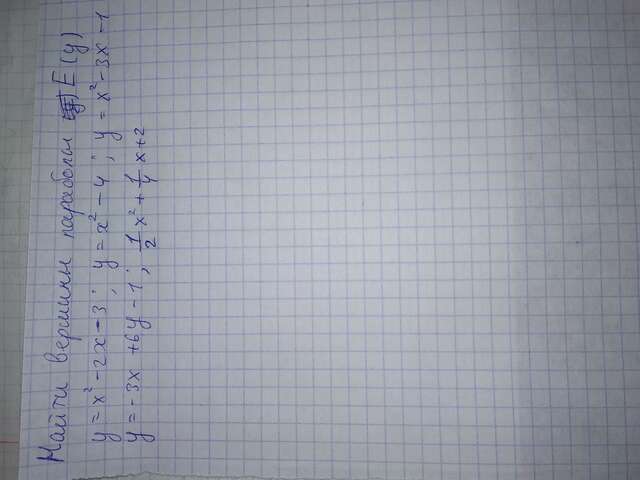 Найти вершины параболы E(y)
y = x² - 2x - 3; y = x² - 4; y = x² - 3x - 1
y = -3x + 6y - 1; 1/2 x² + 1/4 x + 2